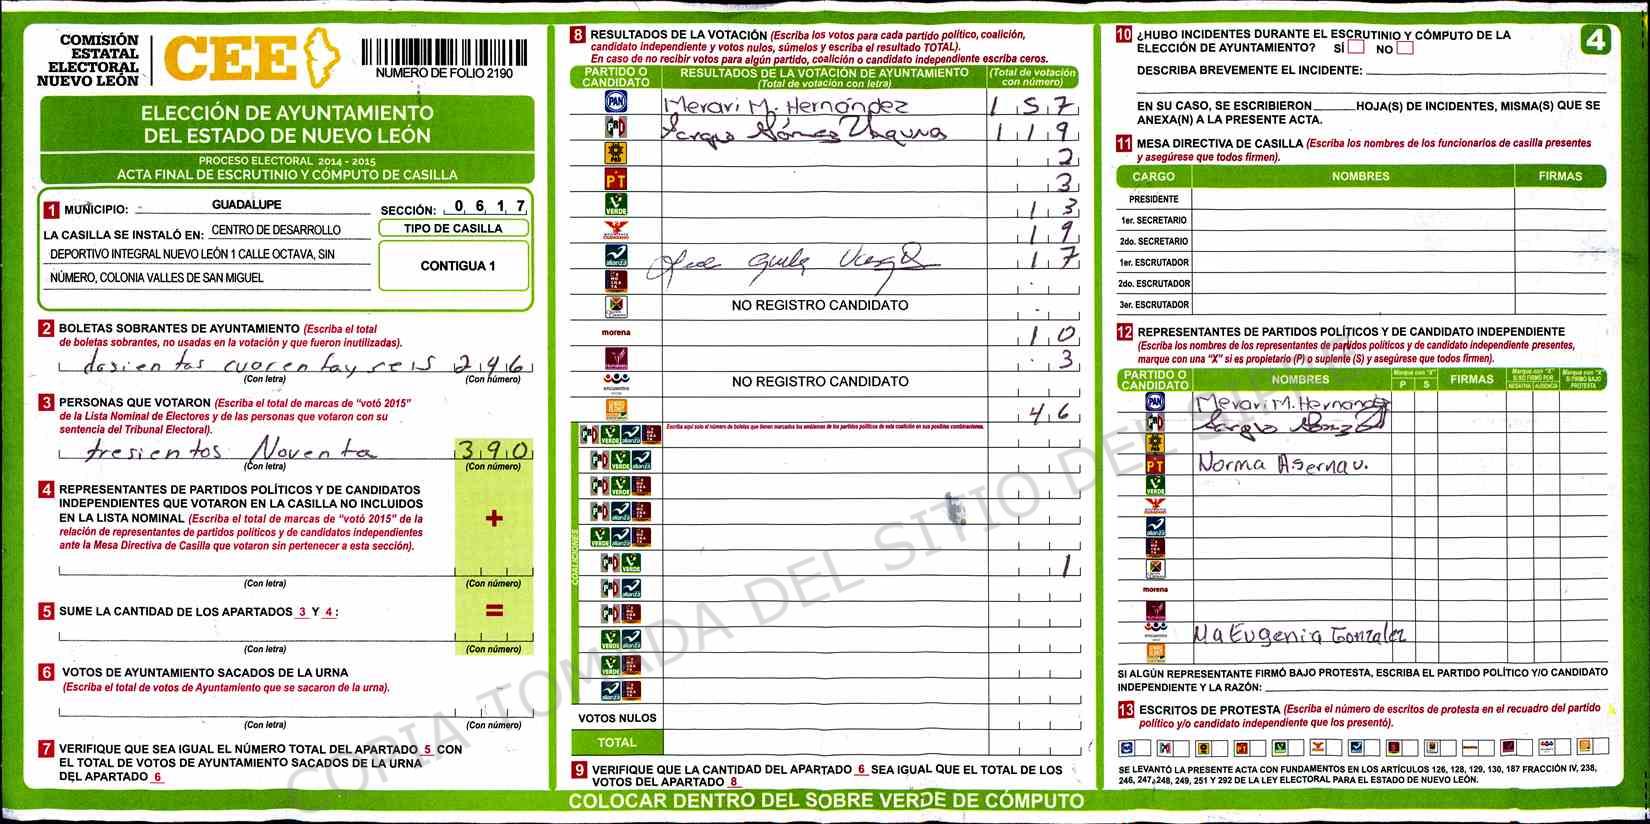 COMISIÓN
ESTATAL
ELECTORAL
NUEVO LEÓN
CEE
NUMERO DE FOLIO 2190
ELECCIÓN DE AYUNTAMIENTO
DEL ESTADO DE NUEVO LEÓN
PROCESO ELECTORAL 2014 - 2015
ACTA FINAL DE ESCRUTINIO Y CÓMPUTO DE CASILLA
1 MUNICIPIO: GUADALUPE SECCIÓN: 0 6 1 7
LA CASILLA SE INSTALÓ EN: CENTRO DE DESARROLLO
DEPORTIVO INTEGRAL NUEVO LEÓN 1 CALLE OCTAVA, SIN
NÚMERO, COLONIA VALLES DE SAN MIGUEL
TIPO DE CASILLA
CONTIGUA 1
2 BOLETAS SOBRANTES DE AYUNTAMIENTO (Escriba el total
de boletas sobrantes, no usadas en la votación y que fueron inutilizadas).
dosientas cuarentayseis 2 4 6
(Con letra) (Con húmero)
3 PERSONAS QUE VOTARON (Escriba el total de marcas de “votó 2015”
de la Lista Nominal de Electores y de las personas que votaron con su
sentencia del Tribunal Electoral).
tresientos Noventa 3 9 0
(Con letra) (Con número)
4 REPRESENTANTES DE PARTIDOS POLÍTICOS Y DE CANDIDATOS
INDEPENDIENTES QUE VOTARON EN LA CASILLA NO INCLUIDOS
EN LA LISTA NOMINAL (Escriba el total de marcas de “votó 2015” de la
relación de representantes de partidos políticos y de candidatos independientes
ante la Mesa Directiva de Casilla que votaron sin pertenecer a esta sección).
+
(Con letra) (Con número)
5 SUME LA CANTIDAD DE LOS APARTADOS 3 Y 4 : =
(Con letra) (Con número)
6 VOTOS DE AYUNTAMIENTO SACADOS DE LA URNA
(Escriba el total de votos de Ayuntamiento que se sacaron de la urna).
(Con letra) (Con número)
7 VERIFIQUE QUE SEA IGUAL EL NÚMERO TOTAL DEL APARTADO 5 CON
EL TOTAL DE VOTOS DE AYUNTAMIENTO SACADOS DE LA URNA
DEL APARTADO 6
8 RESULTADOS DE LA VOTACIÓN (Escriba los votos para cada partido político, coalición,
candidato independiente y votos nulos, súmelos y escriba el resultado TOTAL).
En caso de no recibir votos para algún partido, coalición o candidato independiente escriba ceros.
PARTIDO O CANDIDATO RESULTADOS DE LA VOTACIÓN DE AYUNTAMIENTO (Total de votación con letra) (Total de votación con número)
PAN Merari M. Hernández 1 5 7
PRI 1 1 9
PRD 2
PT 3
VERDE 1 3
1 9
alianza 1 7
NO REGISTRO CANDIDATO
morena 1 0
3
NO REGISTRO CANDIDATO
4 6
Escriba aquí solo el número de boletas que tienen marcados los emblemas de los partidos políticos de esta coalición en sus posibles combinaciones.
COALICIONES
1
VOTOS NULOS
TOTAL
9 VERIFIQUE QUE LA CANTIDAD DEL APARTADO 6 SEA IGUAL QUE EL TOTAL DE LOS
VOTOS DEL APARTADO 8
COLOCAR DENTRO DEL SOBRE VERDE DE CÓMPUTO
10 ¿HUBO INCIDENTES DURANTE EL ESCRUTINIO Y CÓMPUTO DE LA
ELECCIÓN DE AYUNTAMIENTO? SÍ NO
4
DESCRIBA BREVEMENTE EL INCIDENTE:
EN SU CASO, SE ESCRIBIERON HOJA(S) DE INCIDENTES, MISMA(S) QUE SE
ANEXA(N) A LA PRESENTE ACTA.
11 MESA DIRECTIVA DE CASILLA (Escriba los nombres de los funcionarios de casilla presentes
y asegúrese que todos firmen).
CARGO NOMBRES FIRMAS
PRESIDENTE
1er. SECRETARIO
2do. SECRETARIO
1er. ESCRUTADOR
2do. ESCRUTADOR
3er. ESCRUTADOR
12 REPRESENTANTES DE PARTIDOS POLÍTICOS Y DE CANDIDATO INDEPENDIENTE
(Escriba los nombres de los representantes de partidos políticos y de candidato independiente presentes,
marque con una “X” si es propietario (P) o suplente (S) y asegúrese que todos firmen).
PARTIDO O CANDIDATO NOMBRES Marque con "X" P S FIRMAS Marque con "X" SI NO FIRMÓ POR NEGATIVA AUSENCIA Marque con "X" SI FIRMÓ BAJO PROTESTA
PAN Merari M. Hernandez
PRI
PRD
PT Norma A
VERDE
alianza
morena
Ma Eugenia Gonzalez
SI ALGÚN REPRESENTANTE FIRMÓ BAJO PROTESTA, ESCRIBA EL PARTIDO POLÍTICO Y/O CANDIDATO
INDEPENDIENTE Y LA RAZÓN:
13 ESCRITOS DE PROTESTA (Escriba el número de escritos de protesta en el recuadro del partido
político y/o candidato independiente que los presentó).
SE LEVANTÓ LA PRESENTE ACTA CON FUNDAMENTOS EN LOS ARTÍCULOS 126, 128, 129, 130, 187 FRACCIÓN IV, 238,
246, 247, 248, 249, 251 Y 292 DE LA LEY ELECTORAL PARA EL ESTADO DE NUEVO LEÓN.
COPIA TOMADA DEL SITIO DEL